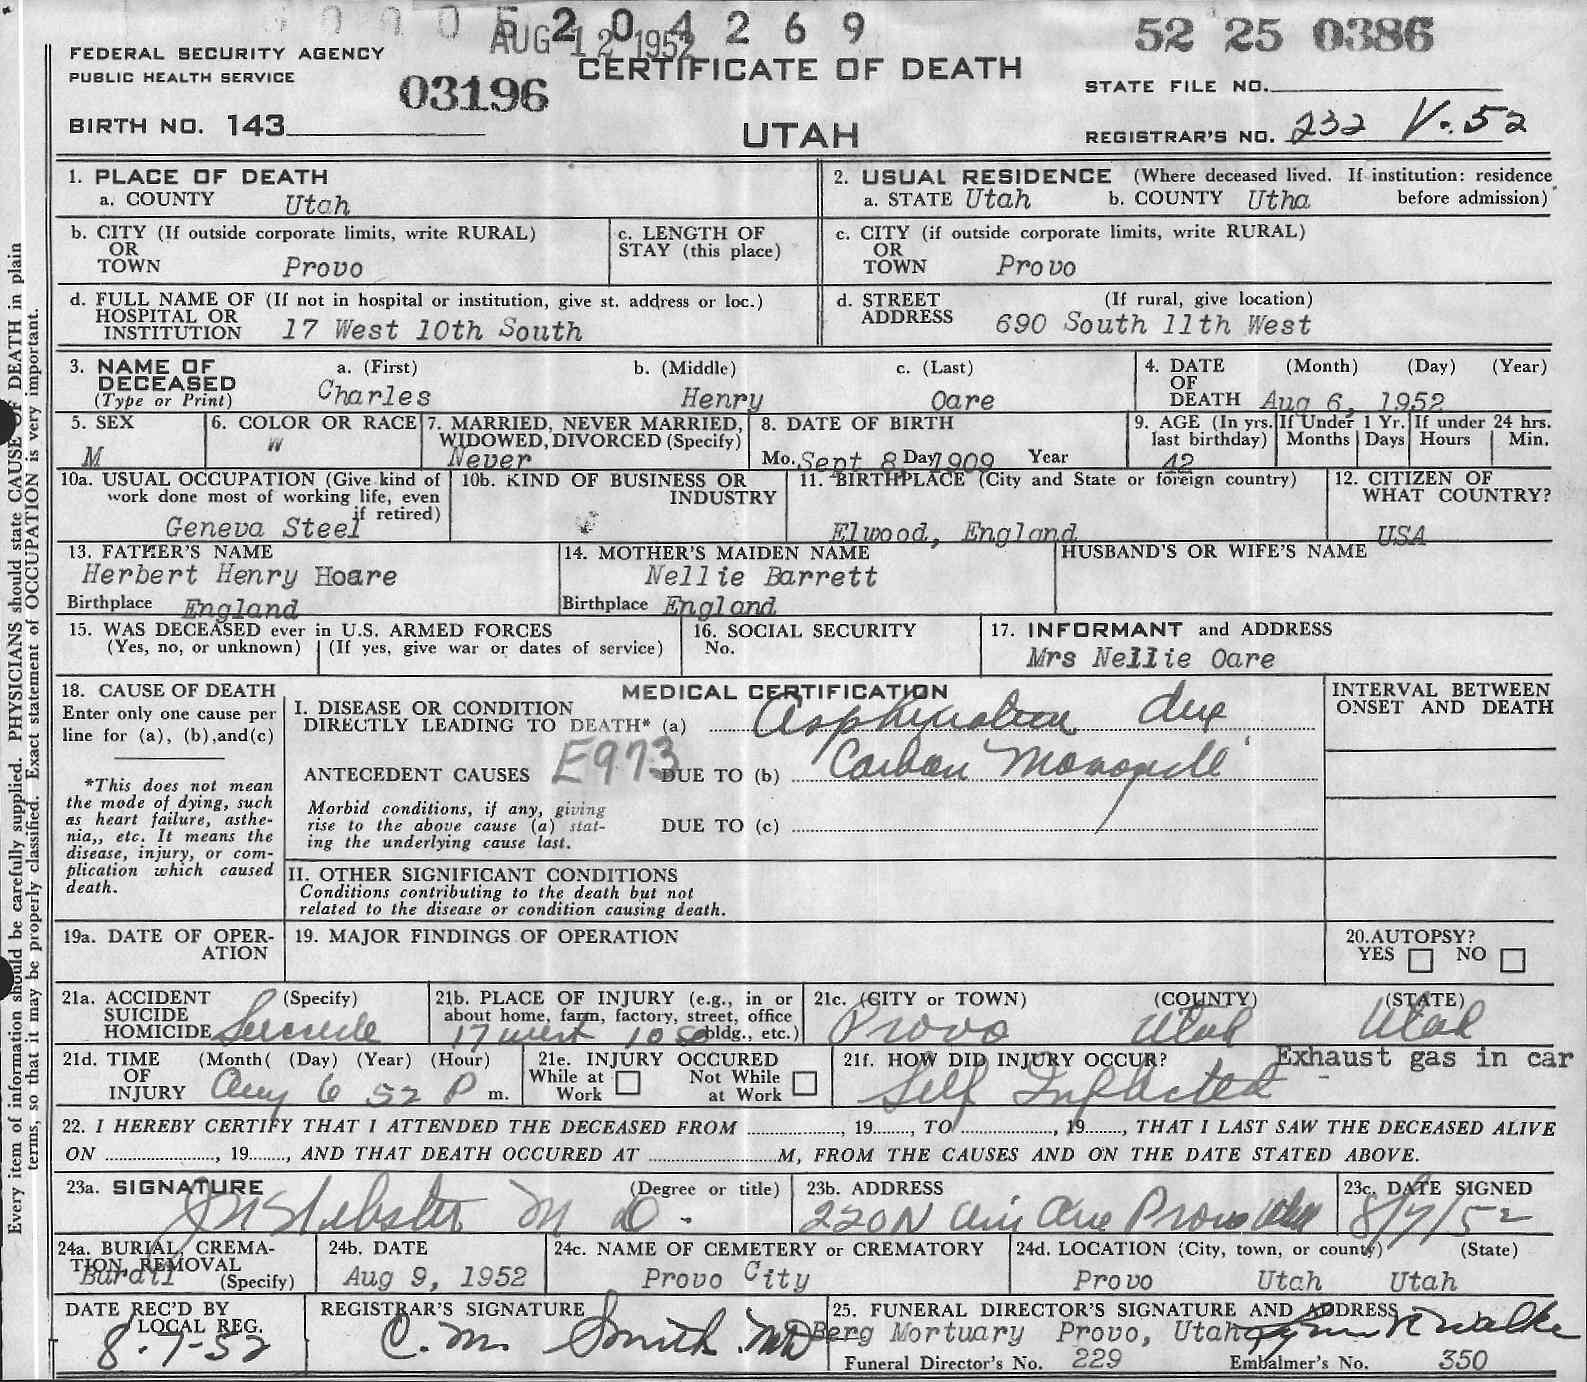 520 4269
AUG 12 1952
52 25 0386
FEDERAL SECURITY AGENCY
PUBLIC HEALTH SERVICE
03196
CERTIFICATE OF DEATH
STATE FILE NO.
BIRTH NO. 143
UTAH
REGISTRAR'S NO. 232 V-52
1. PLACE OF DEATH
a. COUNTY Utah
2. USUAL RESIDENCE (Where deceased lived. If institution: residence
a. STATE Utah b. COUNTY Utha before admission)
b. CITY (If outside corporate limits, write RURAL)
OR
TOWN Provo
c. LENGTH OF
STAY (this place)
c. CITY (if outside corporate limits, write RURAL)
OR
TOWN Provo
d. FULL NAME OF (If not in hospital or institution, give st. address or loc.)
HOSPITAL OR
INSTITUTION 17 West 10th South
d. STREET (If rural, give location)
ADDRESS 690 South 11th West
3. NAME OF a. (First) b. (Middle) c. (Last)
DECEASED Charles Henry Oare
(Type or Print)
4. DATE (Month) (Day) (Year)
OF
DEATH Aug 6, 1952
5. SEX
M
6. COLOR OR RACE
W
7. MARRIED, NEVER MARRIED,
WIDOWED, DIVORCED (Specify)
Never
8. DATE OF BIRTH
Mo. Sept 8 Day 1909 Year
9. AGE (In yrs.
last birthday)
42
If Under 1 Yr.
Months Days
If under 24 hrs.
Hours Min.
10a. USUAL OCCUPATION (Give kind of
work done most of working life, even
if retired)
Geneva Steel
10b. KIND OF BUSINESS OR
INDUSTRY
11. BIRTHPLACE (City and State or foreign country)
Elwood, England
12. CITIZEN OF
WHAT COUNTRY?
USA
13. FATHER'S NAME
Herbert Henry Hoare
Birthplace England
14. MOTHER'S MAIDEN NAME
Nellie Barrett
Birthplace England
HUSBAND'S OR WIFE'S NAME
15. WAS DECEASED ever in U.S. ARMED FORCES
(Yes, no, or unknown) (If yes, give war or dates of service)
16. SOCIAL SECURITY
No.
17. INFORMANT and ADDRESS
Mrs Nellie Oare
18. CAUSE OF DEATH
Enter only one cause per
line for (a), (b), and (c)
*This does not mean
the mode of dying, such
as heart failure, asthe-
nia,, etc. It means the
disease, injury, or com-
plication which caused
death.
MEDICAL CERTIFICATION
I. DISEASE OR CONDITION
DIRECTLY LEADING TO DEATH* (a) Asphyxiation due
E973
ANTECEDENT CAUSES DUE TO (b) Carbon Monoxide
Morbid conditions, if any, giving
rise to the above cause (a) stat-
ing the underlying cause last.
DUE TO (c)
INTERVAL BETWEEN
ONSET AND DEATH
II. OTHER SIGNIFICANT CONDITIONS
Conditions contributing to the death but not
related to the disease or condition causing death.
19a. DATE OF OPER-
ATION
19. MAJOR FINDINGS OF OPERATION
20. AUTOPSY?
YES NO
21a. ACCIDENT (Specify)
SUICIDE
HOMICIDE Suicide
21b. PLACE OF INJURY (e.g., in or
about home, farm, factory, street, office
bldg., etc.)
17 West 10 So
21c. (CITY or TOWN) (COUNTY) (STATE)
Provo Utah Utah
21d. TIME (Month( (Day) (Year) (Hour)
OF
INJURY Aug 6 52 P m.
21e. INJURY OCCURED
While at Not While
Work at Work
21f. HOW DID INJURY OCCUR? Exhaust gas in car
Self Inflicted
22. I HEREBY CERTIFY THAT I ATTENDED THE DECEASED FROM ..............., 19......., TO ..............., 19......., THAT I LAST SAW THE DECEASED ALIVE
ON ..............., 19......., AND THAT DEATH OCCURED AT ..................M, FROM THE CAUSES AND ON THE DATE STATED ABOVE.
23a. SIGNATURE (Degree or title)
Webster M D.
23b. ADDRESS
220 N Provo Utah
23c. DATE SIGNED
8/7/52
24a. BURIAL, CREMA-
TION, REMOVAL
Burail (Specify)
24b. DATE
Aug 9, 1952
24c. NAME OF CEMETERY or CREMATORY
Provo City
24d. LOCATION (City, town, or county) (State)
Provo Utah Utah
DATE REC'D BY
LOCAL REG.
8-7-52
REGISTRAR'S SIGNATURE
C. M. Smith MD
25. FUNERAL DIRECTOR'S SIGNATURE AND ADDRESS
Berg Mortuary Provo, Utah
Funeral Director's No. 229 Embalmer's No. 350
Every item of information should be carefully supplied. PHYSICIANS should state CAUSE OF DEATH in plain
terms, so that it may be properly classified. Exact statement of OCCUPATION is very important.